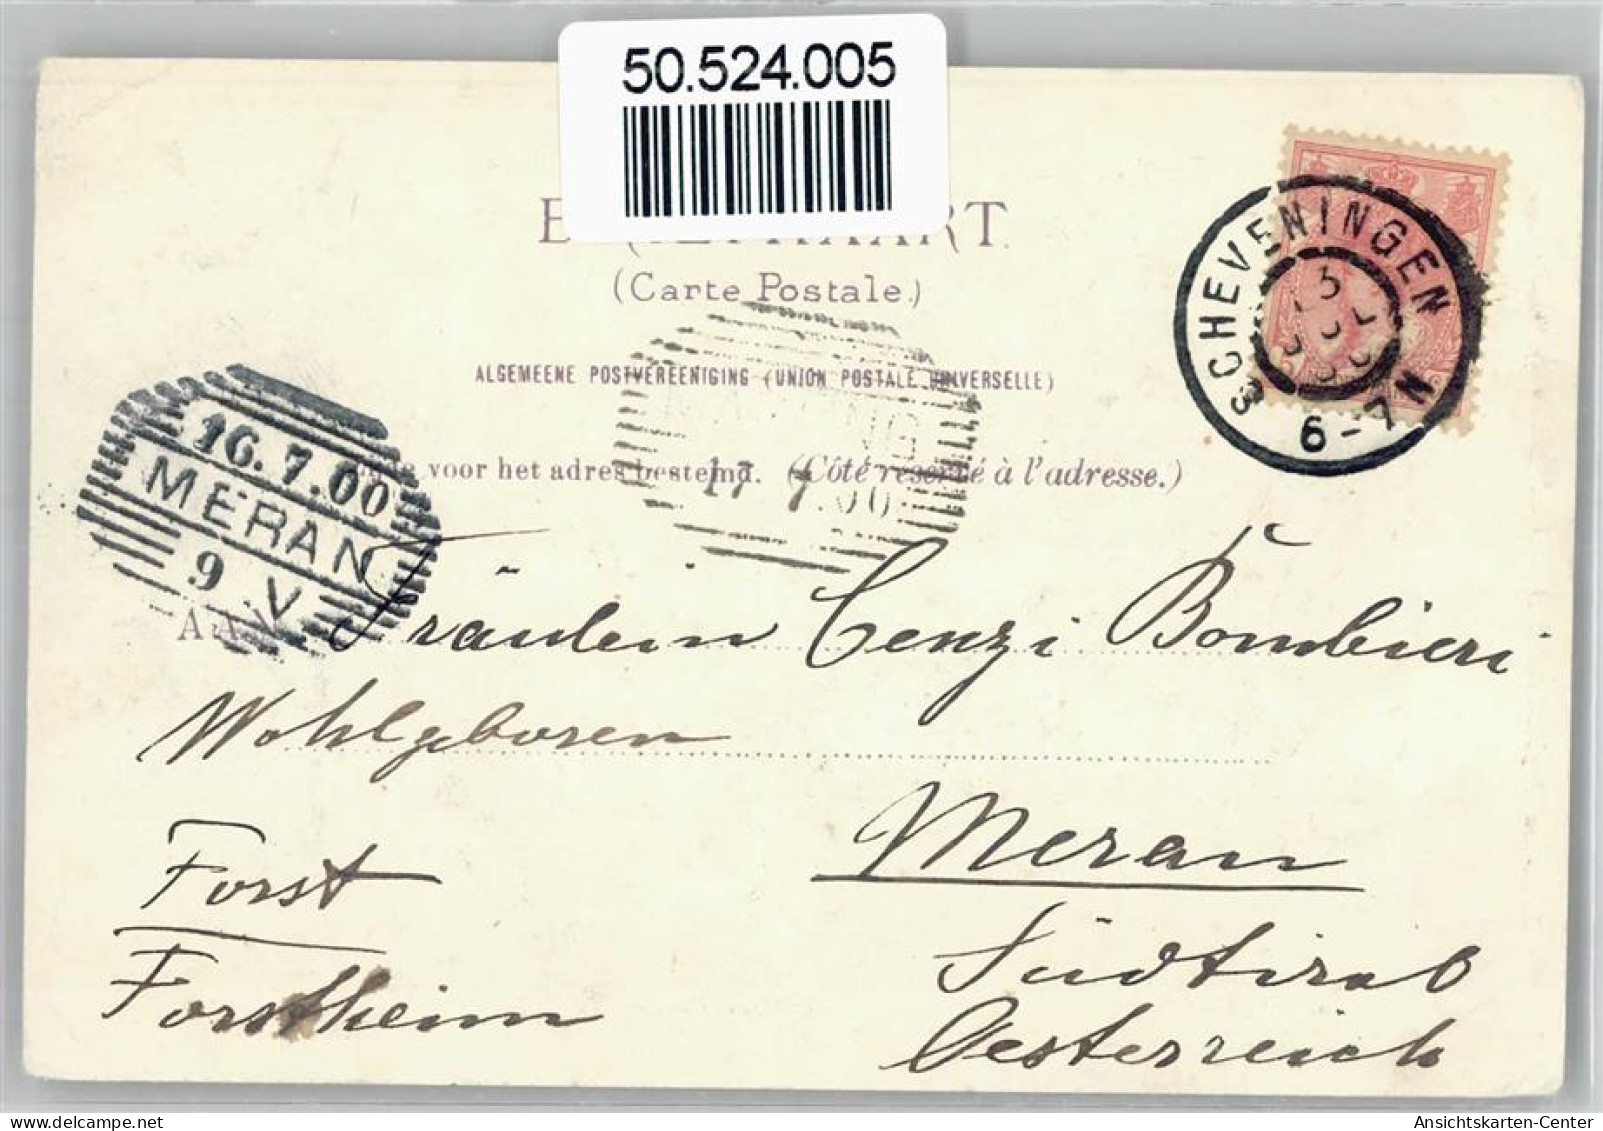 50.524.005
(Carte Postale.)
ALGEMEENE POSTVEREENIGING (UNION POSTALE UNIVERSELLE)
voor het adres bestemd. (Côté réservé à l'adresse.)
SCHEVENINGEN
6-7 N
16.7.00
MERAN
9 V
17 7.00
Fräulein Cenzi Bombieri
Wohlgeboren
Meran
Forst
Südtirol
Forstheim
Oesterreich
Ansichtskarten-Center